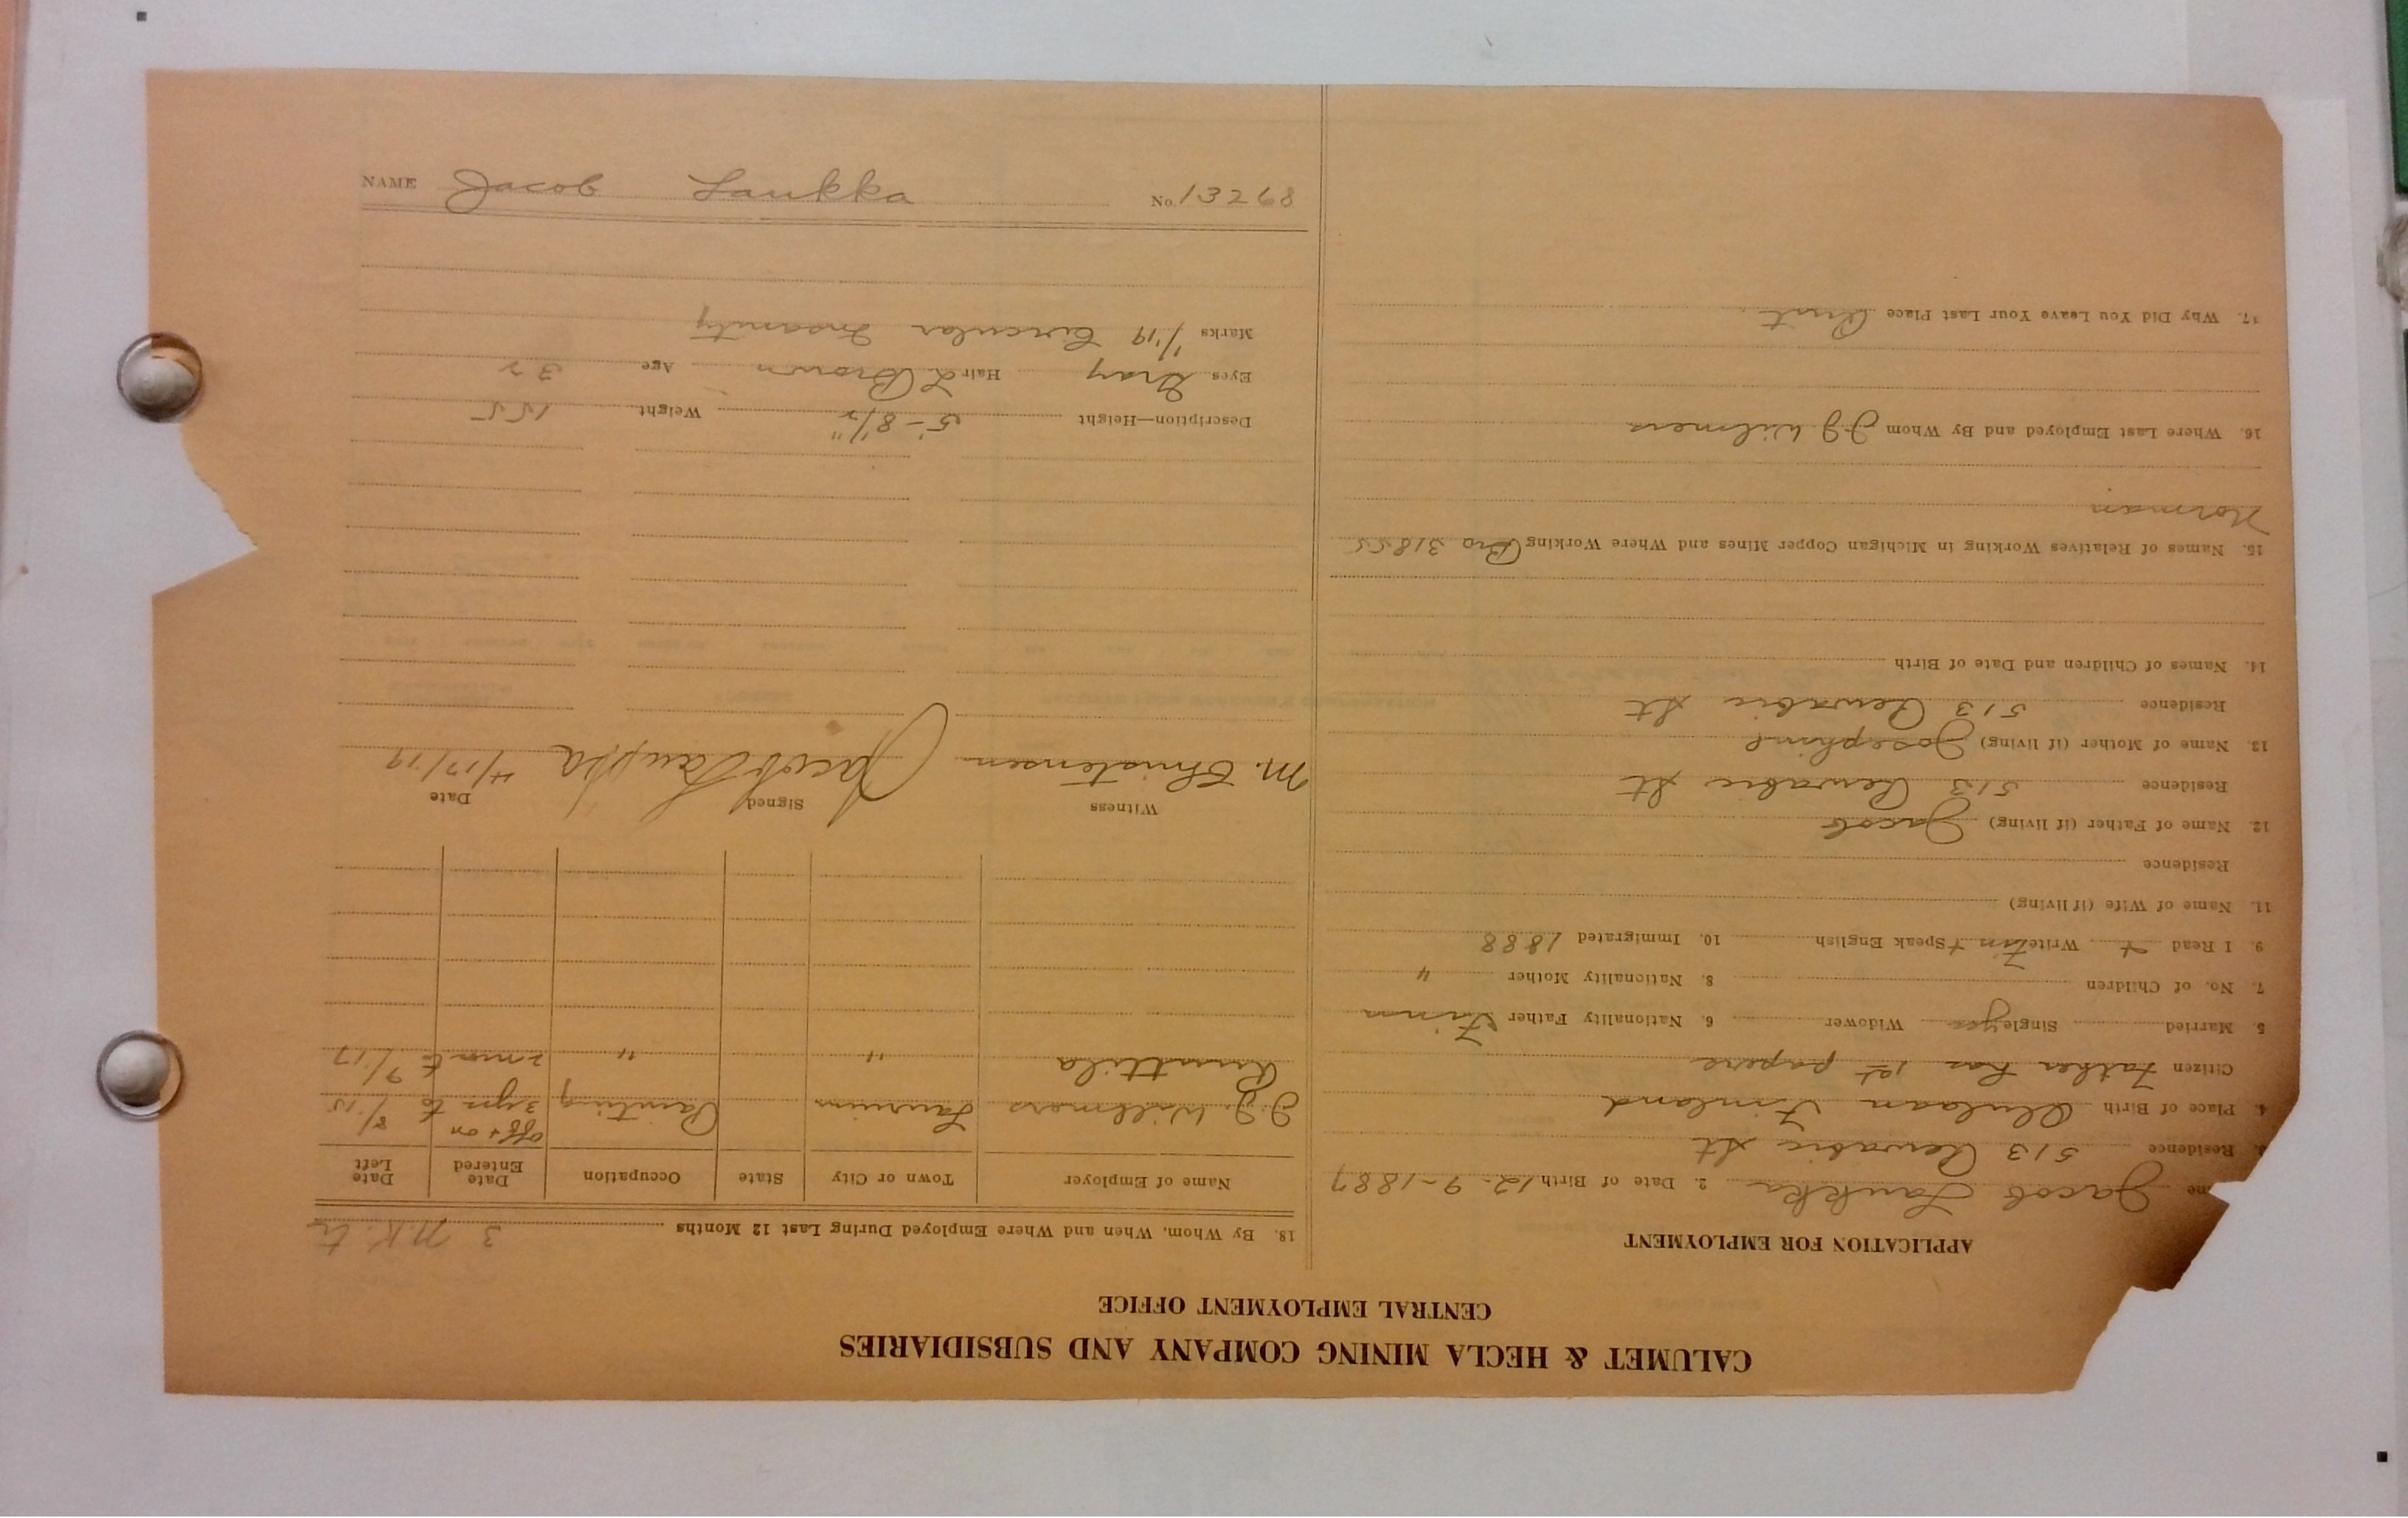 CALUMET & HECLA MINING COMPANY AND SUBSIDIARIES
CENTRAL EMPLOYMENT OFFICE
APPLICATION FOR EMPLOYMENT
me Jacob Laukka 2. Date of Birth 12-9-1887
3. Residence 513 Pewabic St
4. Place of Birth Finland
Citizen Father has 1st papers
5. Married Single yes Widower 6. Nationality Father Finn
7. No. of Children 8. Nationality Mother "
9. I Read + Write Finn + Speak English 10. Immigrated 1888
11. Name of Wife (if living)
Residence
12. Name of Father (if living) Jacob
Residence 513 Pewabic St
13. Name of Mother (if living) Josephine
Residence 513 Pewabic St
14. Names of Children and Date of Birth
15. Names of Relatives Working in Michigan Copper Mines and Where Working Bro 31855
Norman
16. Where Last Employed and By Whom J J Wilmers
17. Why Did You Leave Your Last Place
18. By Whom, When and Where Employed During Last 12 Months 3 N.K.
Name of Employer Town or City State Occupation Date Entered Date Left
J.J. Wilmers Laurium Painting off + on 3 yrs to 8/15
" " 2 mon to 9/17
Witness Signed Date
M. Christensen Jacob Laukka 4/17/19
Description—Height 5'-8 1/2" Weight 155
Eyes Gray Hair L Brown Age 32
Marks 1/19 Circular Insanity
NAME Jacob Laukka No. 13268